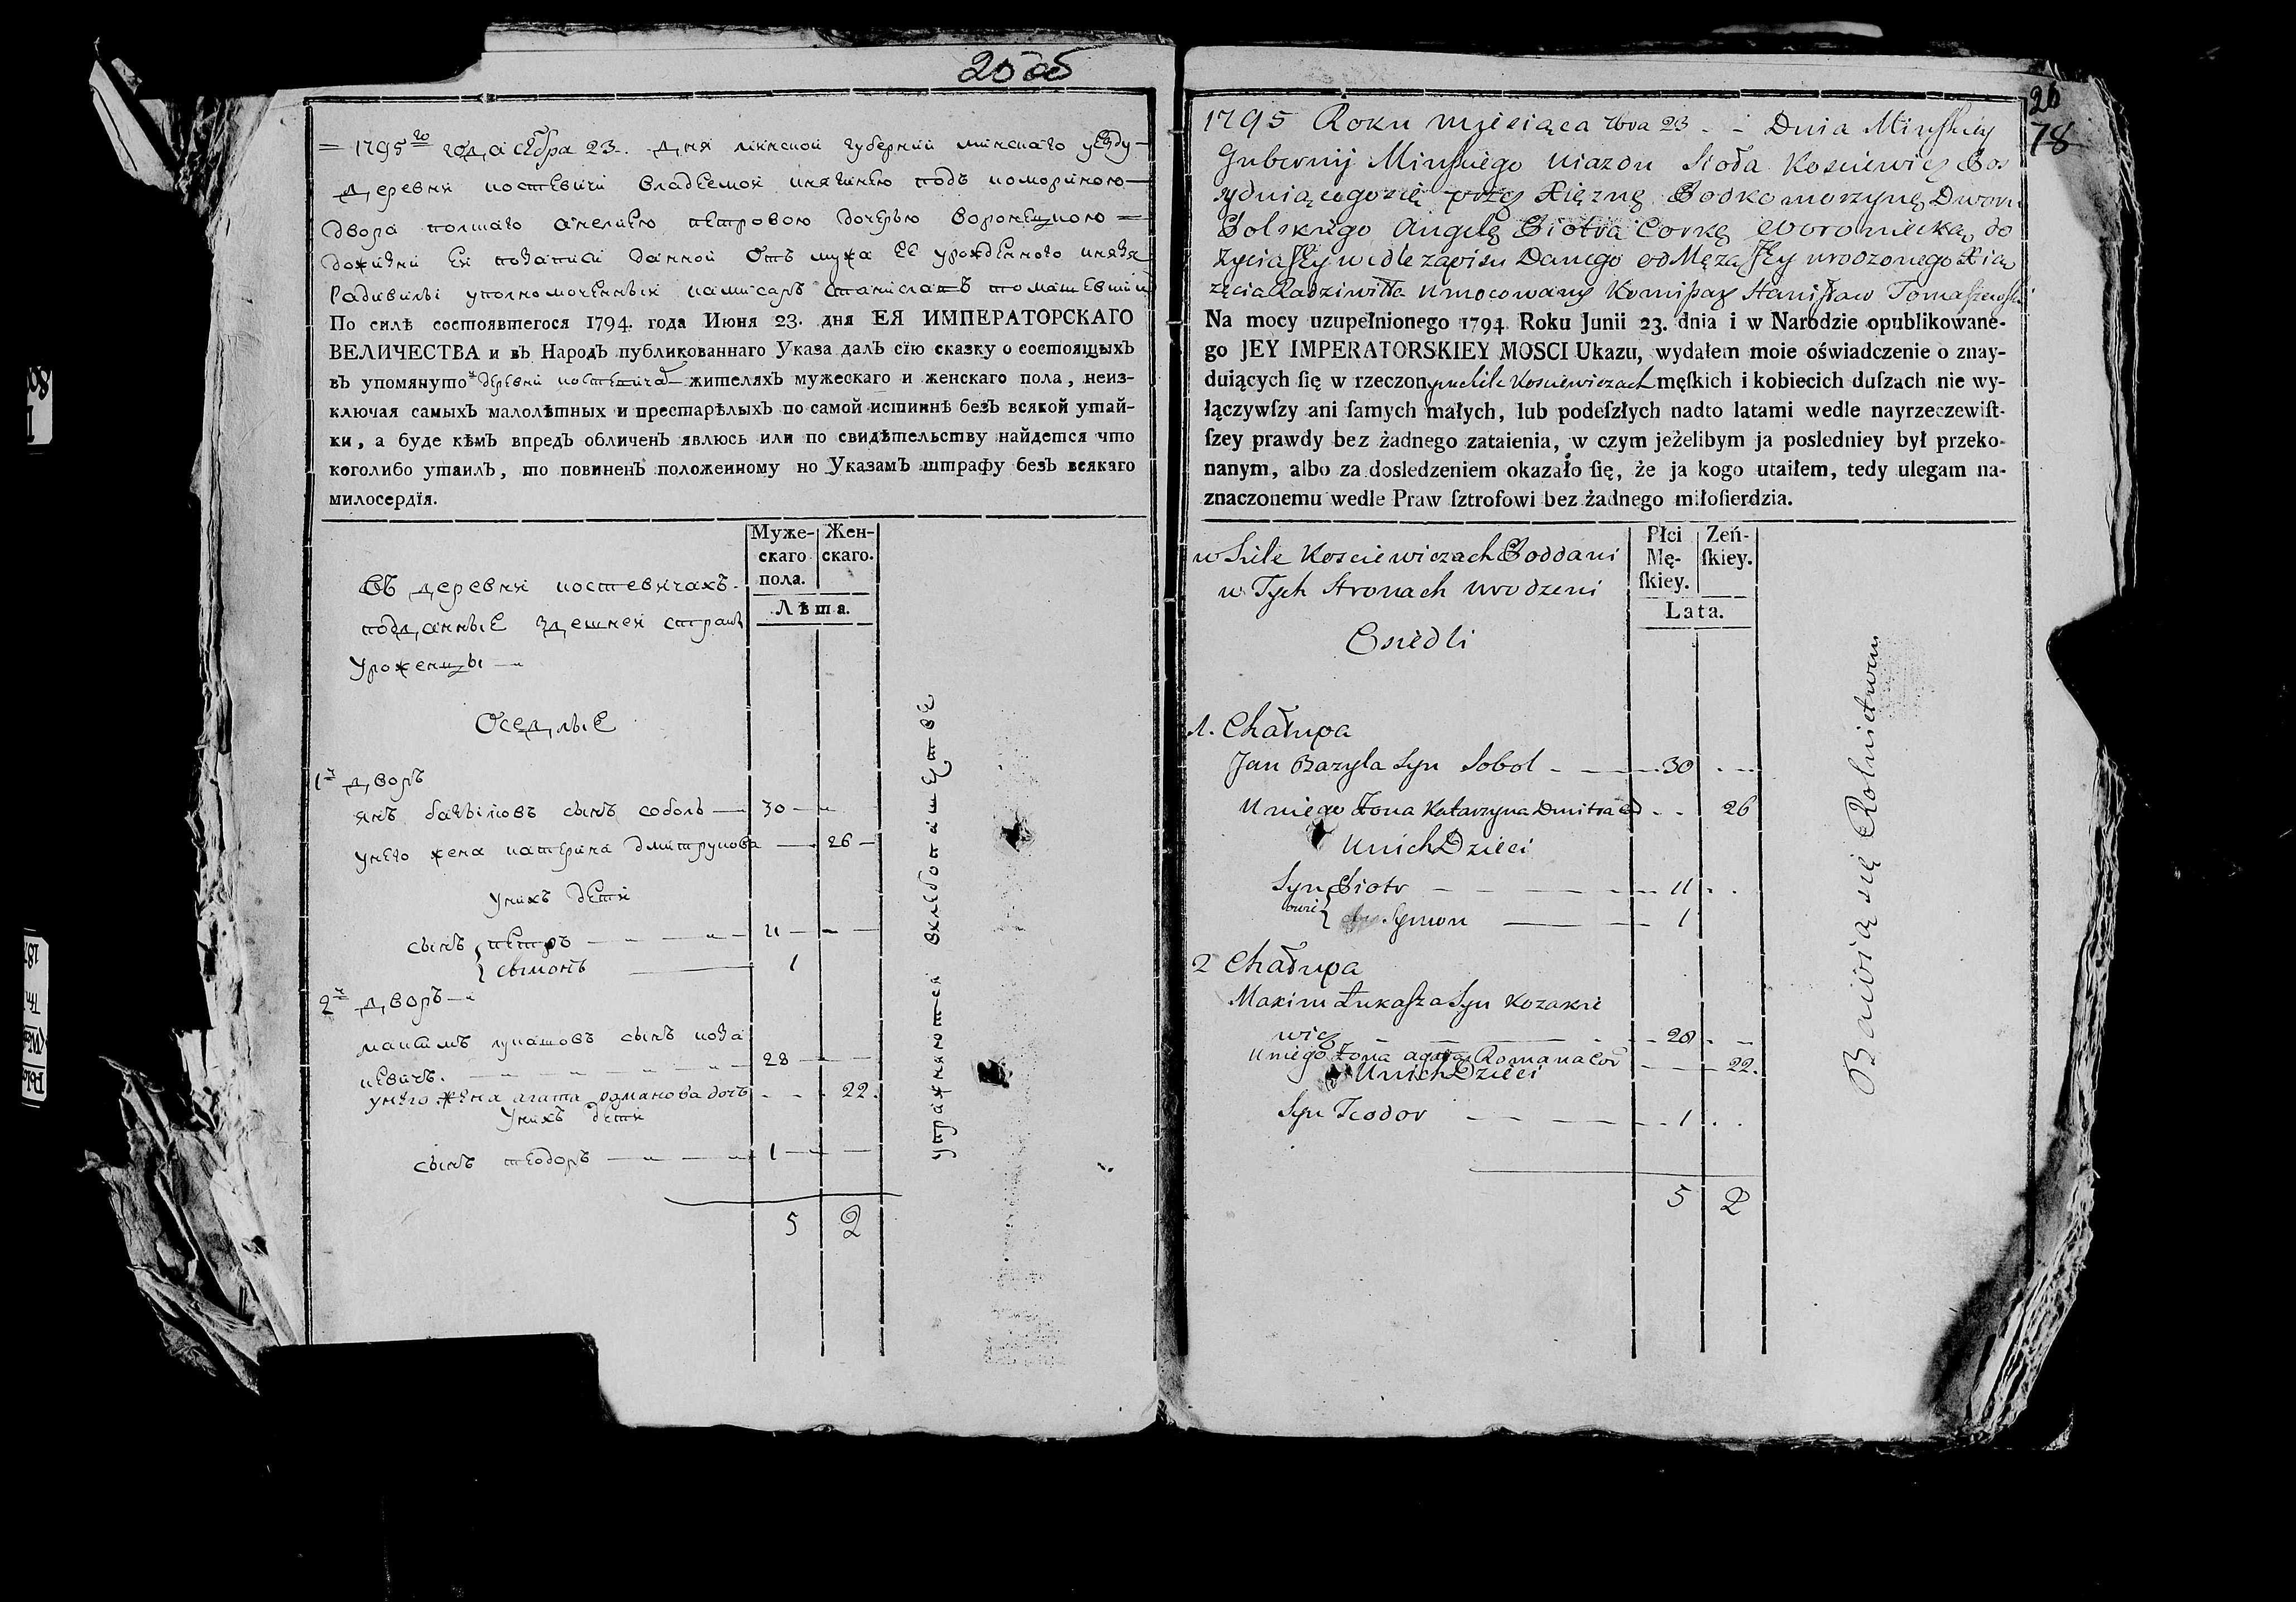 20 об
= 1795 го года себра 23. дня минской губернии минскаго уезду
деревни костевичи владемой княгинею подъ коморкиною
двора полшаго анелиею петровою дочерью воронецкою =
дожизни ей позаписи данной отъ мужа ее урожденного князя
Радивила уполномоченный камисаръ станиславъ томашевский
По силѣ состоявшегося 1794. года Июня 23. дня ЕЯ ИМПЕРАТОРСКАГО
ВЕЛИЧЕСТВА и въ Народъ публикованнаго Указа далъ сїю сказку о состоящыхъ
въ упомянуто й деревни костевичахъ жителяхъ мужескаго и женскаго пола, неиз-
ключая самыхъ малолѣтныхъ и престарѣлыхъ по самой истиннѣ безъ всякой утай-
ки, а буде кѣмъ впредъ обличенъ явлюсь или по свидѣтельству найдется что
коголибо утаилъ, то повиненъ положенному по Указамъ штрафу безъ всякаго
милосердїя.
Муже-
скаго
пола.
Жен-
скаго.
Лѣта.
Въ деревни костевичахъ
подданные здешней страны
уроженцы
Оседлые
1й дворъ
янъ базылювъ сынъ соболь 30
унего жена катерина дмитрукова 26
унихъ дети
сынъ петръ 11
сымонъ 1
2й дворъ
максимъ лукашовъ сынъ коза
кевичъ. 28
унего жена агата романова дочь 22.
Унихъ дети
сынъ теодоръ 1
5 2
упражняются вхлебопашестве
20
78
1795 Roku miesiąca 7bra 23 Dnia Minskiey
Gubernij Minskiego Uiazdu Sioła Kosciewicz Pos
sydniącegosię przez Xiężnę Podkomorzynę Dworu
Polskiego Angelę Piotra Corkę Woroniecką do
życia Jey wedle zapisu Danego od Męża Jey urodzonego Xią
żęcia Radziwiłła Umocowany Komissarz Stanisław Tomaszewski
Na mocy uzupełnionego 1794 Roku Junii 23. dnia i w Narodzie opublikowane-
go JEY IMPERATORSKIEY MOSCI Ukazu, wydałem moie oświadczenie o znay-
duiących ſię w rzeczonym siele Kosciewiczach męſkich i kobiecich duſzach nie wy-
łączywſzy ani ſamych małych, lub podeſzłych nadto latami wedle nayrzeczewiſt-
ſzey prawdy bez żadnego zataienia, w czym jeżelibym ja posledniey był przeko-
nanym, albo za dosledzeniem okazało ſię, że ja kogo utaiłem, tedy ulegam na-
znaczonemu wedle Praw ſztrofowi bez żadnego miłoſierdzia.
Płci
Mę-
ſkiey.
Zeń-
ſkiey.
Lata.
w Siele Kosciewiczach Poddani
w Tych Stronach urodzeni
Osiedli
1. Chałupa
Jan Bazyla Syn Sobol 30
U niego Żona Katarzyna Dmitra Cd 26
Unich Dzieci
Syn Piotr 11
owie Symon 1
2 Chałupa
Maxim Łukasza Syn Kozakie
wicz 28
Uniego Żona agata Romana Cor 22.
Unich Dzieci
Syn Teodor 1
5 2
Bawią się Rolnictwem